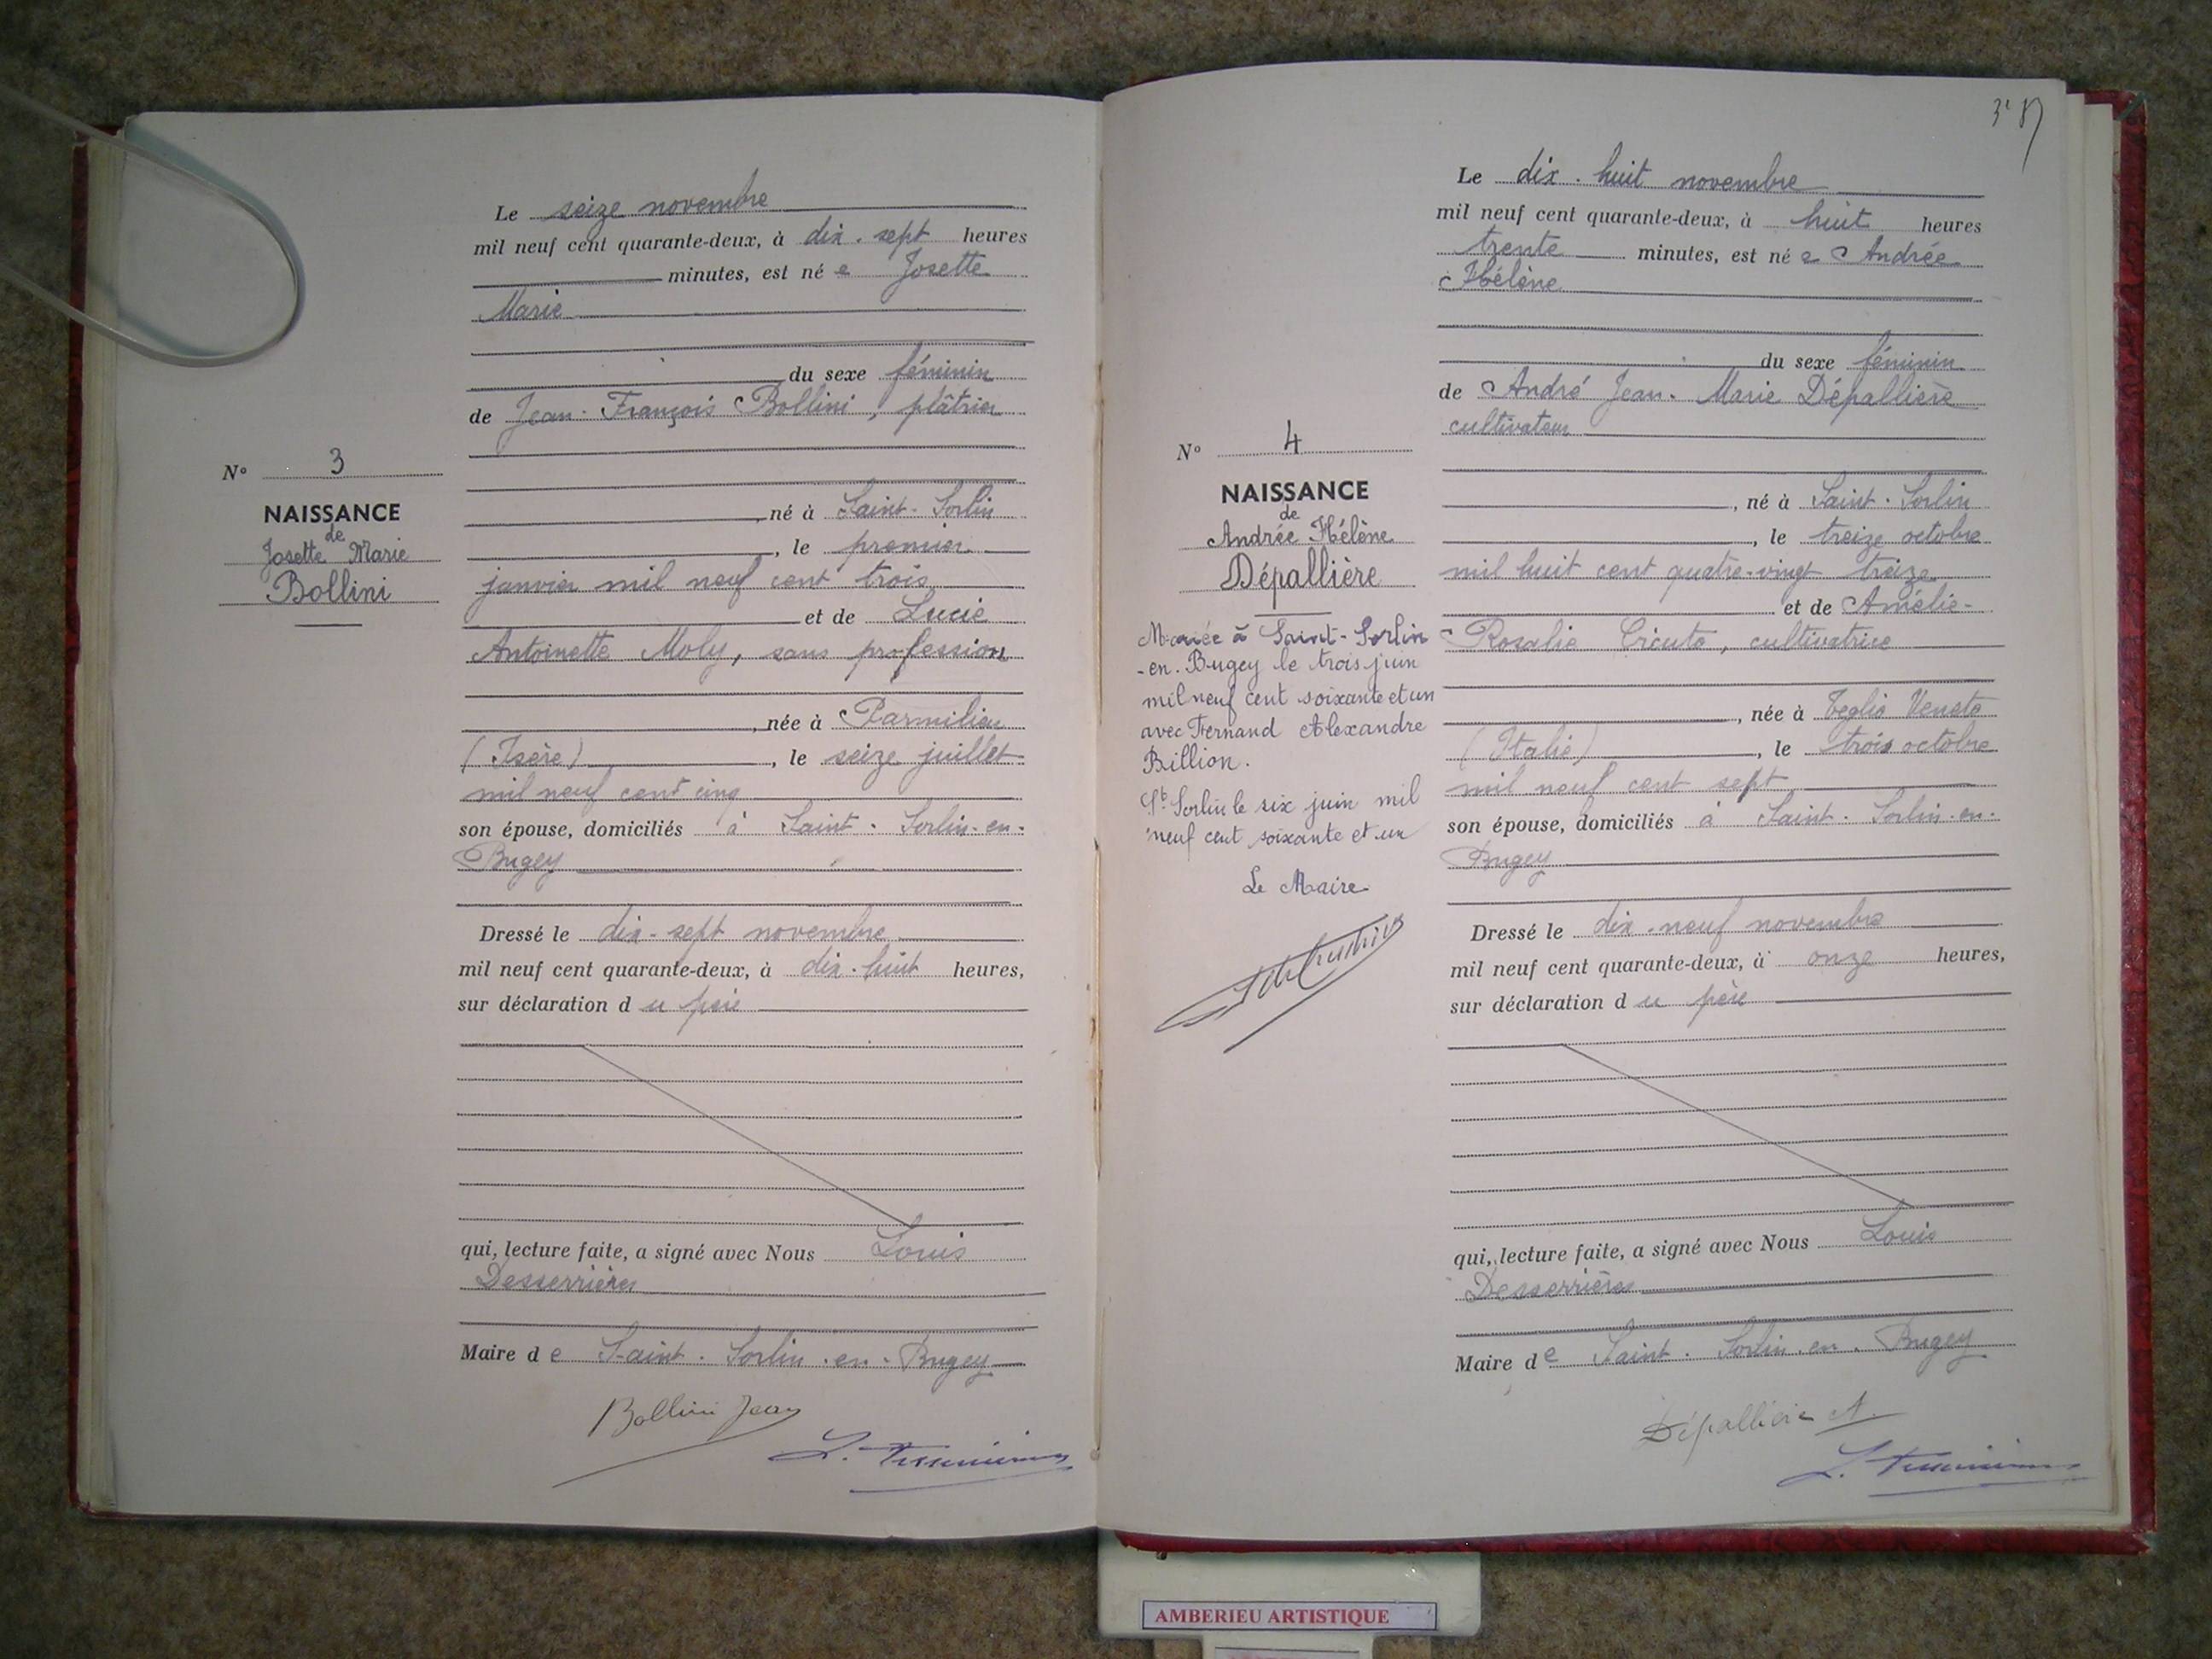 N° 3
NAISSANCE
de
Josette Marie
Bollini
Le seize novembre
mil neuf cent quarante-deux, à dix-sept heures
minutes, est né e Josette
Marie
du sexe féminin
de Jean-François Bollini, plâtrier
né à Saint-Sorlin
, le premier
janvier mil neuf cent trois
et de Lucie
Antoinette Moly, sans profession
née à Parmilieu
(Isère), le seize juillet
mil neuf cent cinq
son épouse, domiciliés à Saint-Sorlin-en-
Bugey
Dressé le dix-sept novembre
mil neuf cent quarante-deux, à dix-huit heures,
sur déclaration d u père
qui, lecture faite, a signé avec Nous Louis
Desserrières
Maire d e Saint-Sorlin-en-Bugey
Bollini Jean
3e
N° 4
NAISSANCE
de
Andrée Hélène
Dépallière
Mariée à Saint-Sorlin
-en-Bugey le trois juin
mil neuf cent soixante et un
avec Fernand Alexandre
Billion.
St Sorlin le six juin mil
neuf cent soixante et un
Le Maire
Le dix-huit novembre
mil neuf cent quarante-deux, à huit heures
trente minutes, est né e Andrée
Hélène
du sexe féminin
de André Jean-Marie Dépallière
cultivateur
, né à Saint-Sorlin
, le treize octobre
mil huit cent quatre-vingt treize
et de Amélie-
Rosalie Cicuto, cultivatrice
, née à Teglio Veneto
(Italie), le trois octobre
mil neuf cent sept
son épouse, domiciliés à Saint-Sorlin-en-
Bugey
Dressé le dix-neuf novembre
mil neuf cent quarante-deux, à onze heures,
sur déclaration d u père
qui, lecture faite, a signé avec Nous Louis
Desserrières
Maire d e Saint-Sorlin-en-Bugey
Dépallière A.
AMBERIEU ARTISTIQUE